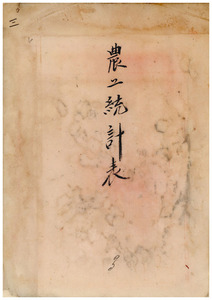 農工統計表
三